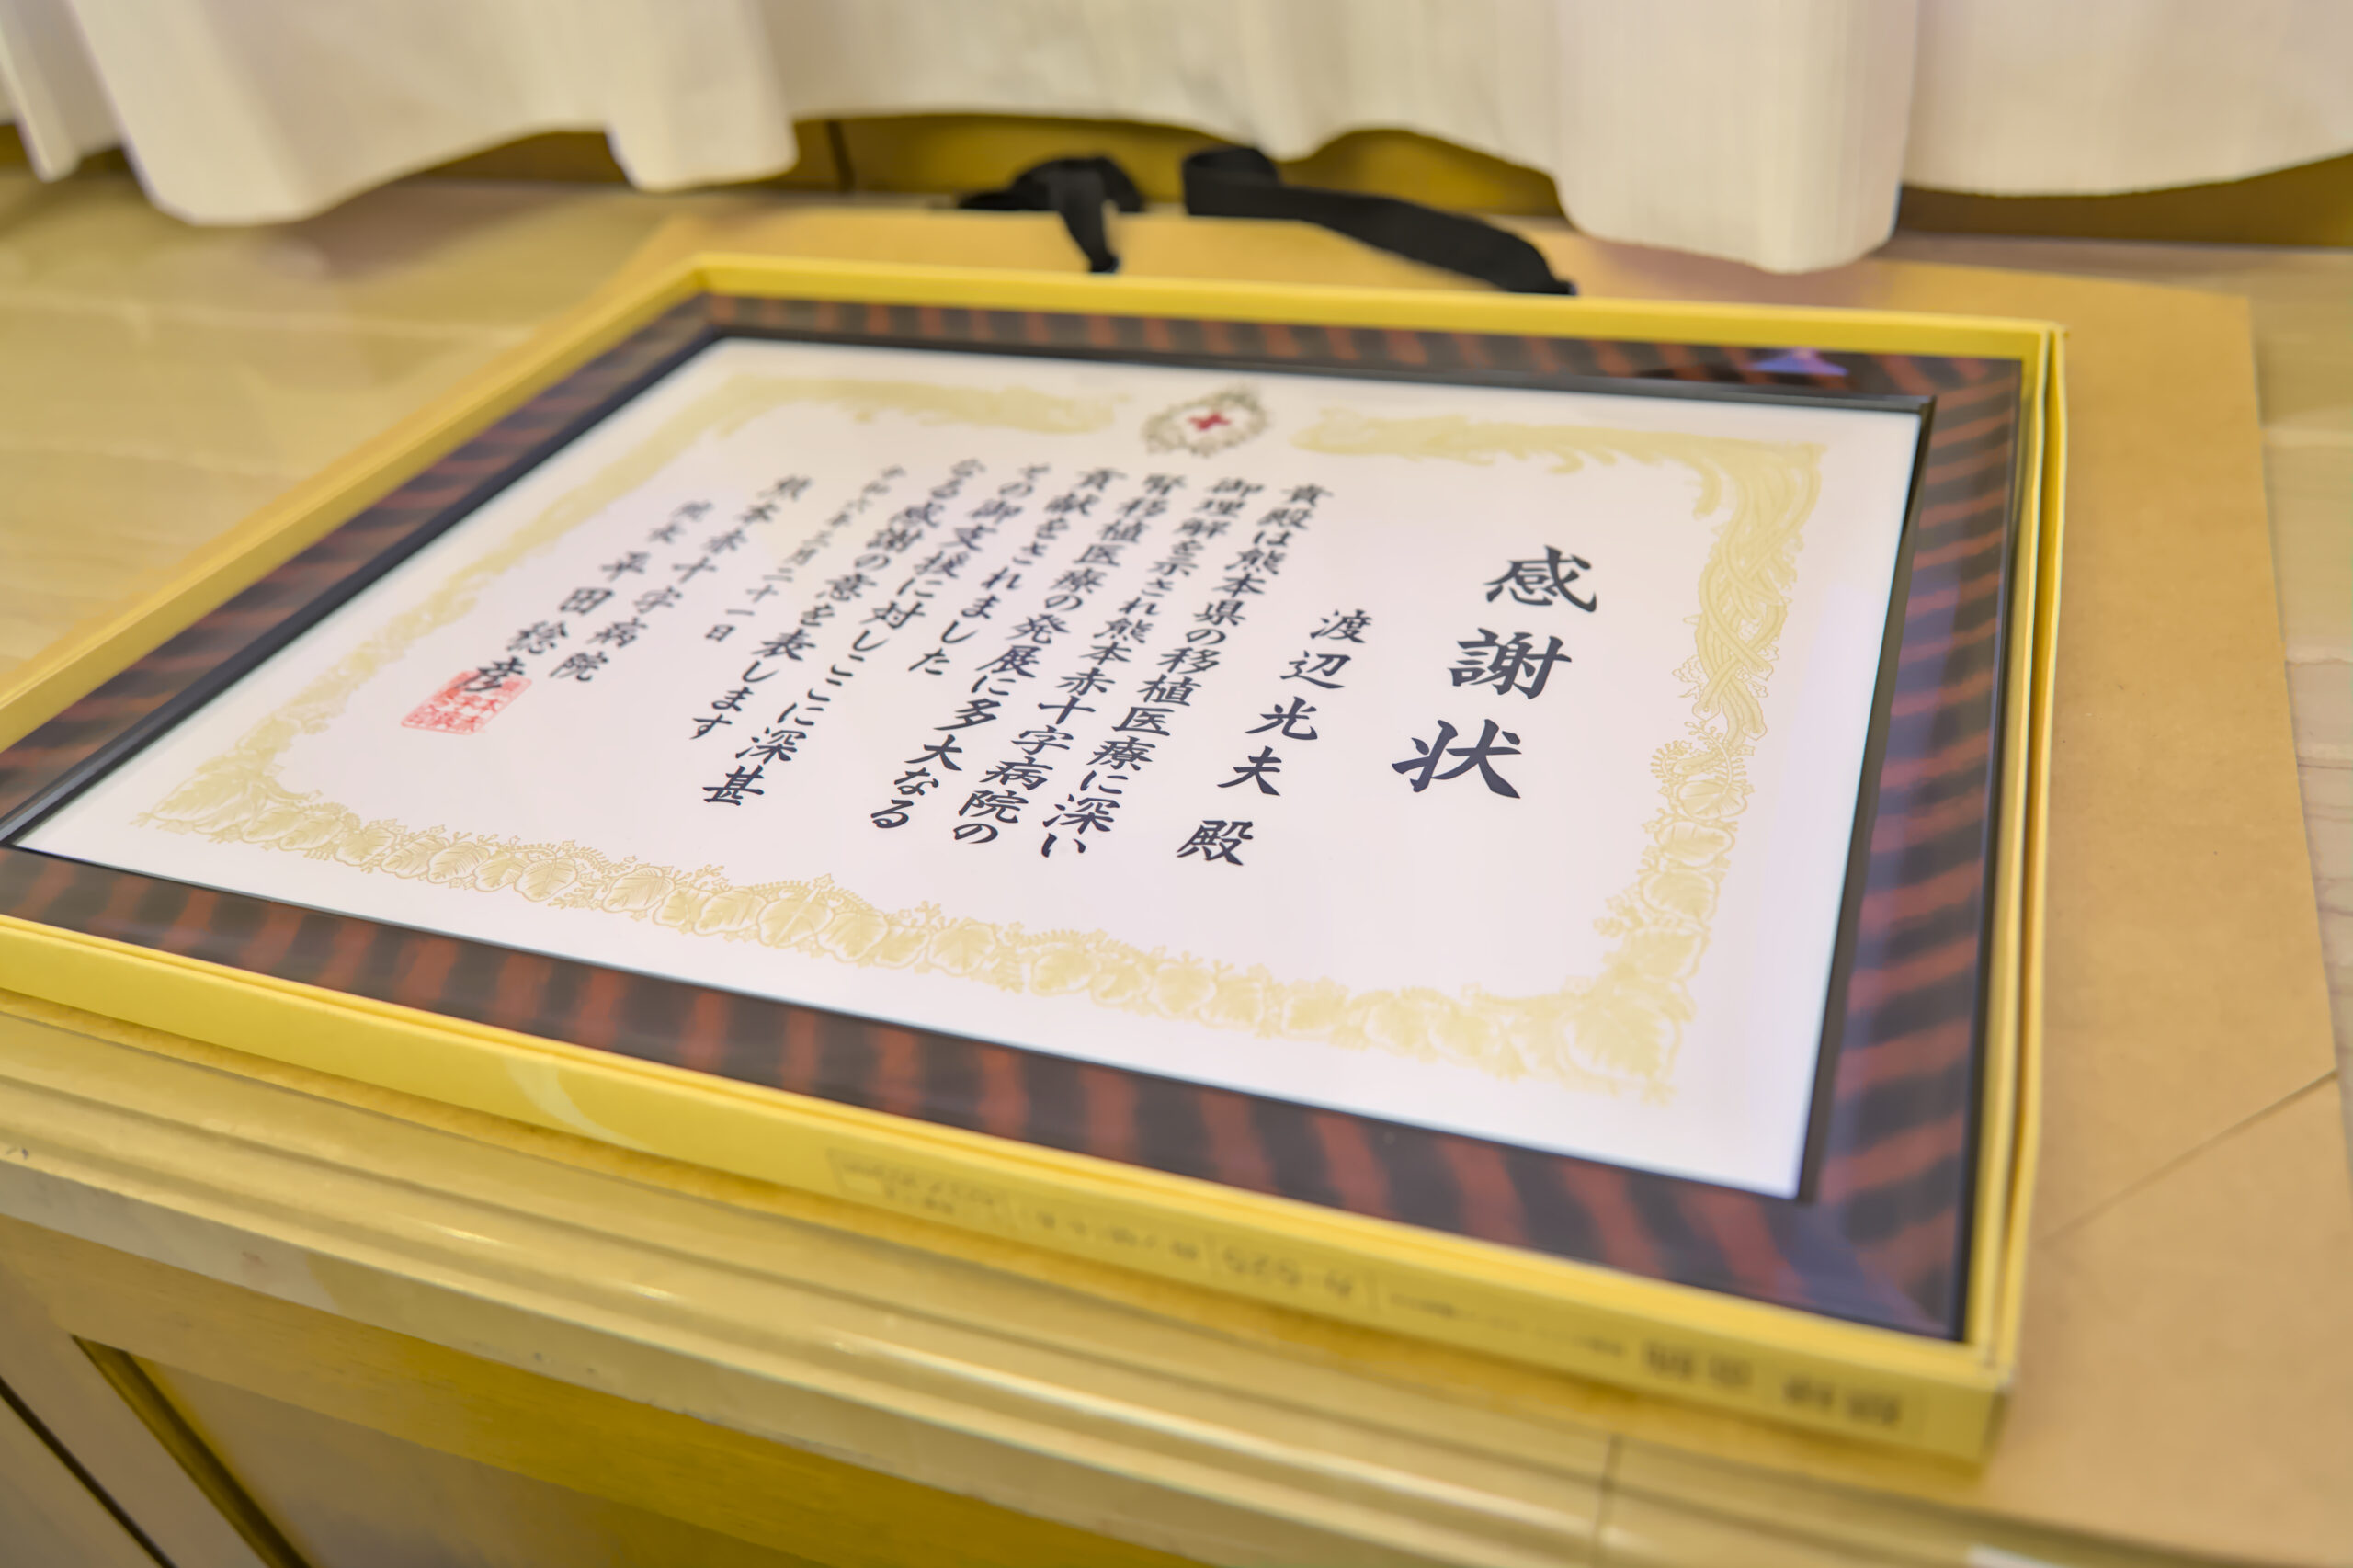 感謝状
渡辺光夫 殿
貴殿は熊本県の移植医療に深い
御理解を示され熊本赤十字病院の
腎移植医療の発展に多大なる
貢献をされました
その御支援に対しここに深甚
なる感謝の意を表します
令和六年三月二十一日
熊本赤十字病院
院長 平田稔彦